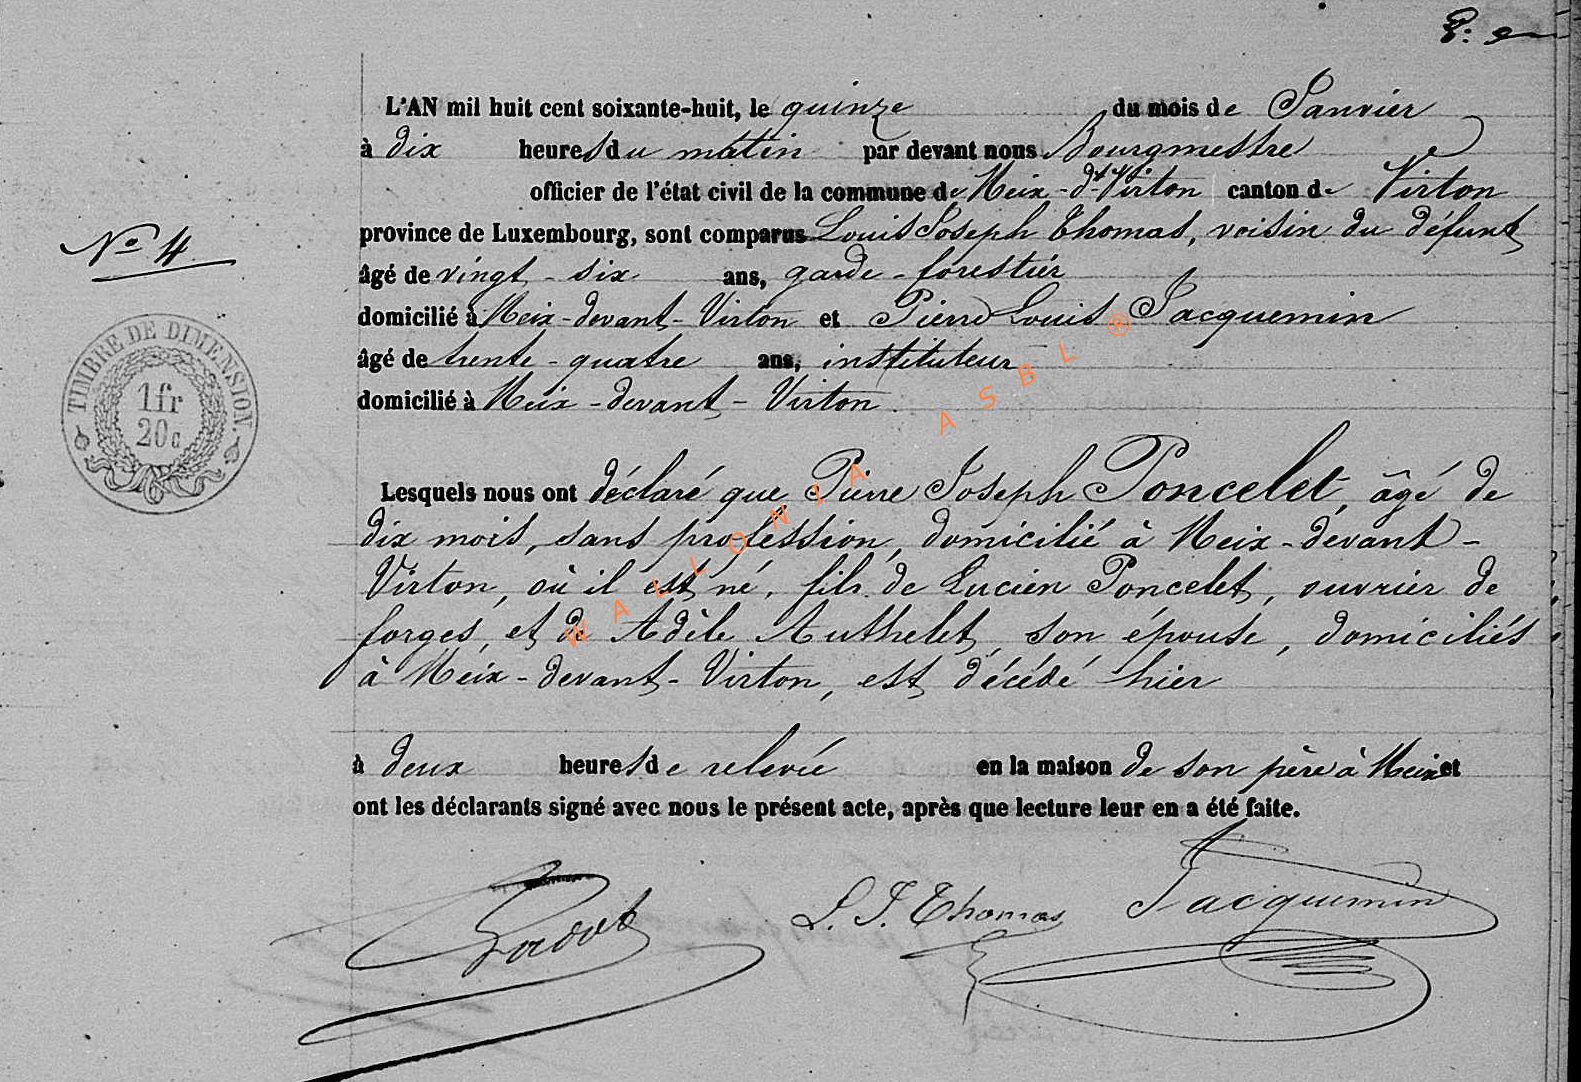 L'AN mil huit cent soixante-huit, le quinze du mois de Janvier
à dix heures du matin par devant nous Bourgmestre
officier de l'état civil de la commune de Meix-dt-Virton canton de Virton
province de Luxembourg, sont comparus Louis Joseph Thomas, voisin du défunt
N° 4
âgé de vingt-six ans, garde-forestier
domicilié à Meix-devant-Virton et Pierre Louis Jacquemin
âgé de trente-quatre ans, instituteur
domicilié à Meix-devant-Virton.
TIMBRE DE DIMENSION.
1fr
20c
Lesquels nous ont déclaré que Pierre Joseph Poncelet, âgé de
dix mois, sans profession, domicilié à Meix-devant-
Virton, où il est né, fils de Lucien Poncelet, ouvrier de
forges, et de Adèle Authelet, son épouse, domiciliés
à Meix-devant-Virton, est décédé hier
à deux heures de relevée en la maison de son père à Meix et
ont les déclarants signé avec nous le présent acte, après que lecture leur en a été faite.
L. J. Thomas Jacquemin
WALLONIA ASBL ®